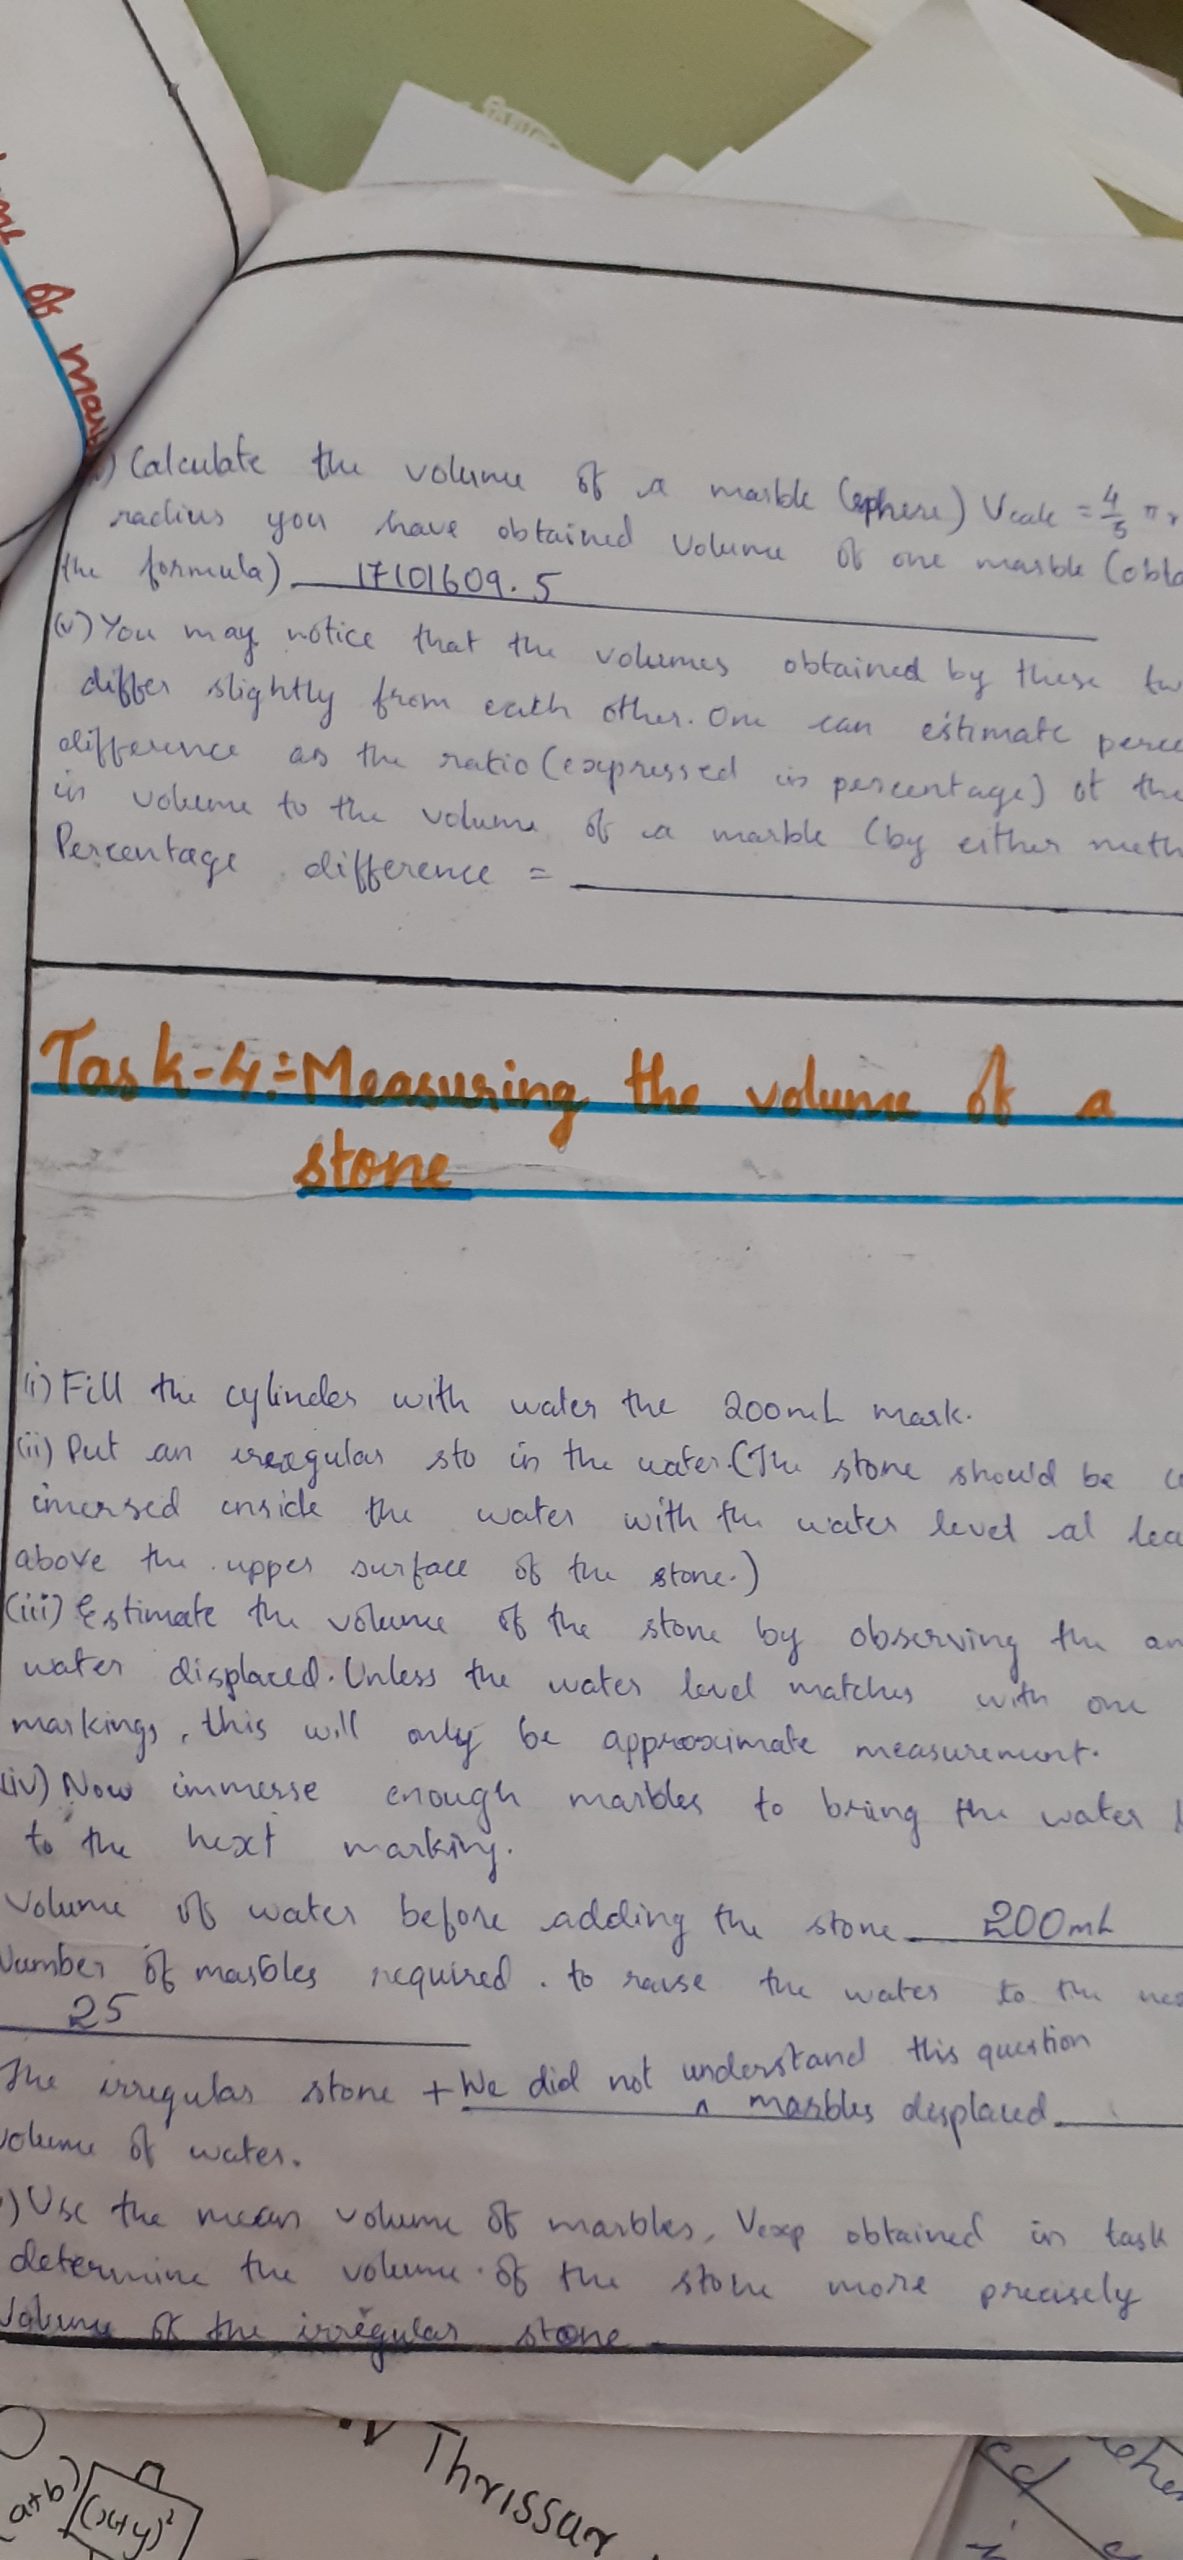 of mar
) Calculate the volume of a marble (sphere) Vcalc = 4/3 π r
radius you have obtained volume of one marble (obta
the formula) 17101609.5
(v) You may notice that the volumes obtained by these tw
differ slightly from each other. One can estimate perce
difference as the ratio (expressed in percentage) of the
in volume to the volume of a marble (by either meth
Percentage difference =
Task-4:-Measuring the volume of a
stone
(i) Fill the cylinder with water the 200mL mark.
(ii) Put an irregular sto in the water. (The stone should be c
imersed inside the water with the water level at lea
above the upper surface of the stone.)
(iii) Estimate the volume of the stone by observing the am
water displaced. Unless the water level matches with one
markings, this will only be approximate measurement.
(iv) Now immerse enough marbles to bring the water l
to the next marking.
Volume of water before adding the stone 200mL
Number of marbles required. to raise the water to the nex
25
The irregular stone + We did not understand this question marbles displaced
volume of water.
) Use the mean volume of marbles, Vexp obtained in task
determine the volume of the stone more precisely
Volume of the irregular stone
Thrissur
(a+b)
(x+y)²